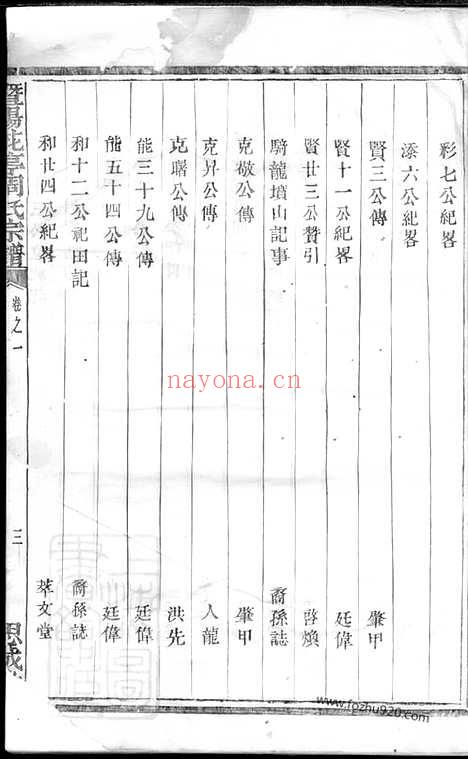 彩七公紀畧
添六公紀畧
賢三公傳 肇甲
賢十一公紀畧 廷偉
賢廿三公贊引 啓煥
騎龍墳山記事 裔孫誌
克敬公傳 肇甲
克昇公傳 人龍
克曙公傳 洪先
能三十九公傳 廷偉
能五十四公傳 廷偉
和十二公祀田記 裔孫誌
和廿四公紀畧 萃文堂
暨陽花亭周氏宗譜 卷之一 三
nayona.cn
www.fozhu920.com